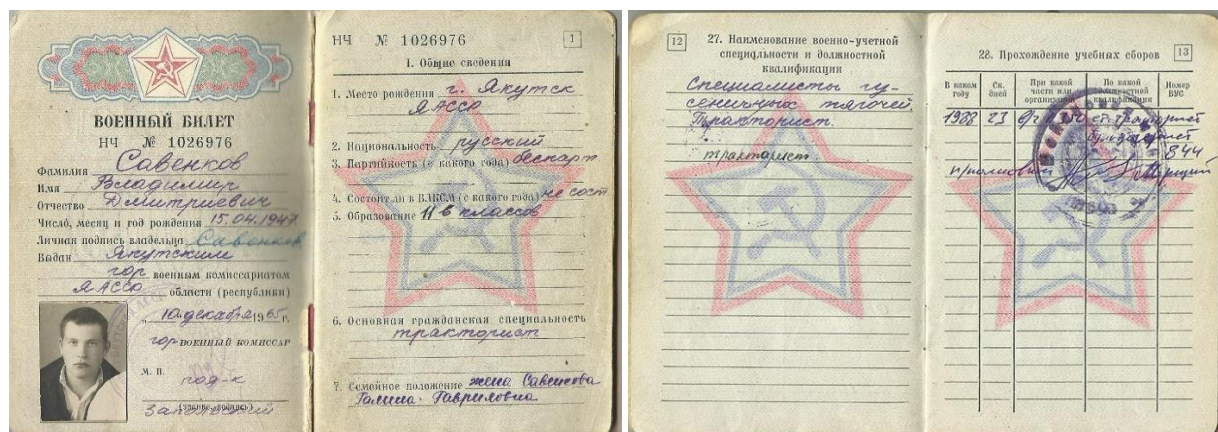 ВОЕННЫЙ БИЛЕТ
НЧ № 1026976
Фамилия Савенков
Имя Владимир
Отчество Дмитриевич
Число, месяц и год рождения 15.04.1947
Личная подпись владельца Савенков
Выдан Якутским
гор военным комиссариатом
ЯАССР области (республики)
„ 10 декабря 1965 г.
гор ВОЕННЫЙ КОМИССАР
М. П. под-к
(звание, подпись)
НЧ № 1026976 1
I. Общие сведения
1. Место рождения г. Якутск
ЯАССР
2. Национальность русский
3. Партийность (с какого года) беспарт
4. Состоит ли в ВЛКСМ (с какого года) не сост
5. Образование 11 классов
6. Основная гражданская специальность
тракторист
7. Семейное положение жена Савенкова
Галина Гавриловна
12 27. Наименование военно-учетной
специальности и должностной
квалификации
Специалисты гу-
сеничных тягачей
Тракторист.
тракторист
28. Прохождение учебных сборов 13
В каком году Ск. дней При какой части или организации По какой должностной квалификации Номер ВУС
1988 23 в/ч ст. тракторист
844
п/полковник